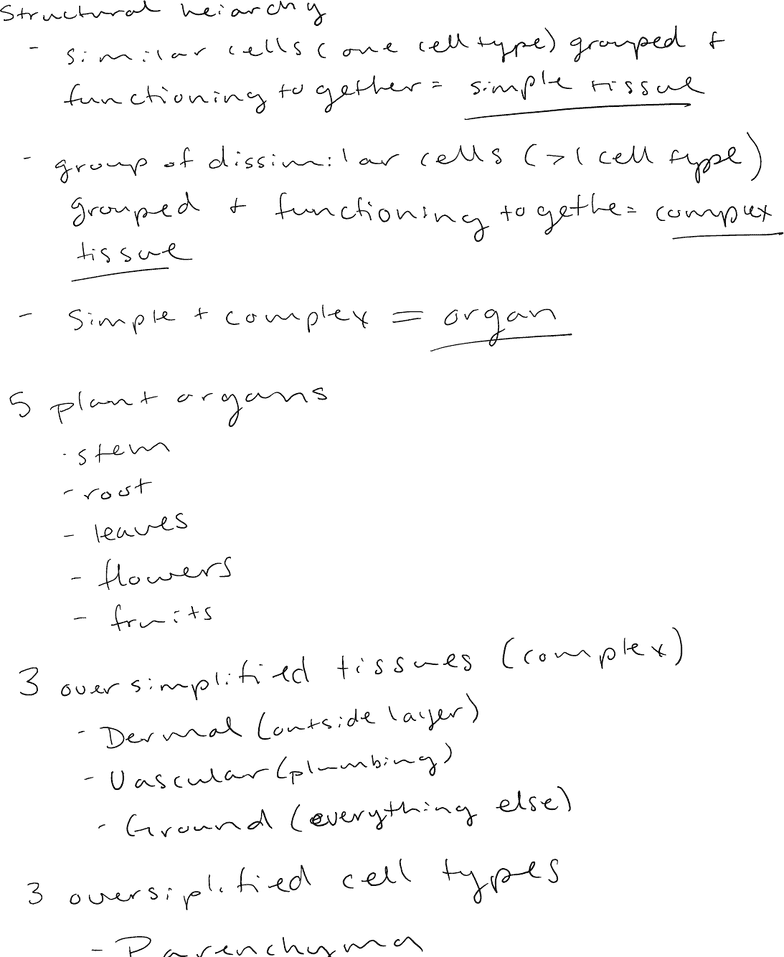 structural heiarchy
- similar cells (one cell type) grouped +
functioning together = simple tissue
- group of dissimilar cells (>1 cell type)
grouped + functioning togethe = complex
tissue
- simple + complex = organ
5 plant organs
- stem
- root
- leaves
- flowers
- fruits
3 oversimplified tissues (complex)
- Dermal (outside layer)
- Vascular (plumbing)
- Ground (everything else)
3 oversiplified cell types
- Parenchyma